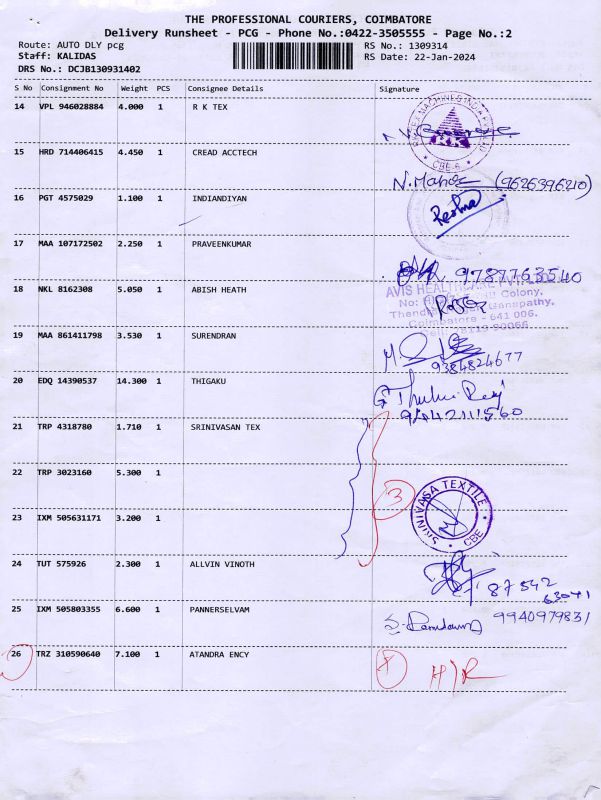 THE PROFESSIONAL COURIERS, COIMBATORE
Delivery Runsheet - PCG - Phone No.:0422-3505555 - Page No.:2
Route: AUTO DLY pcg RS No.: 1309314
Staff: KALIDAS RS Date: 22-Jan-2024
DRS No.: DCJB130931402
S No Consignment No Weight PCS Consignee Details Signature
14 VPL 946028884 4.000 1 R K TEX
CBE-6
15 HRD 714406415 4.450 1 CREAD ACCTECH
N. Mahe (9626396210)
16 PGT 4575029 1.100 1 INDIANDIYAN
Reshma
17 MAA 107172502 2.250 1 PRAVEENKUMAR
9787763540
18 NKL 8162308 5.050 1 ABISH HEATH
AVIS HEALTHCARE PVT
No: Colony,
Ganapathy,
Coimbatore - 641 006.
19 MAA 861411798 3.530 1 SURENDRAN
9384824677
20 EDQ 14390537 14.300 1 THIGAKU
21 TRP 4318780 1.710 1 SRINIVASAN TEX
22 TRP 3023160 5.300 1
3
SRINIVASA TEXTILE
CBE
23 IXM 505631171 3.200 1
24 TUT 575926 2.300 1 ALLVIN VINOTH
87542
63041
25 IXM 505803355 6.600 1 PANNERSELVAM
9940979831
26 TRZ 310590640 7.100 1 ATANDRA ENCY